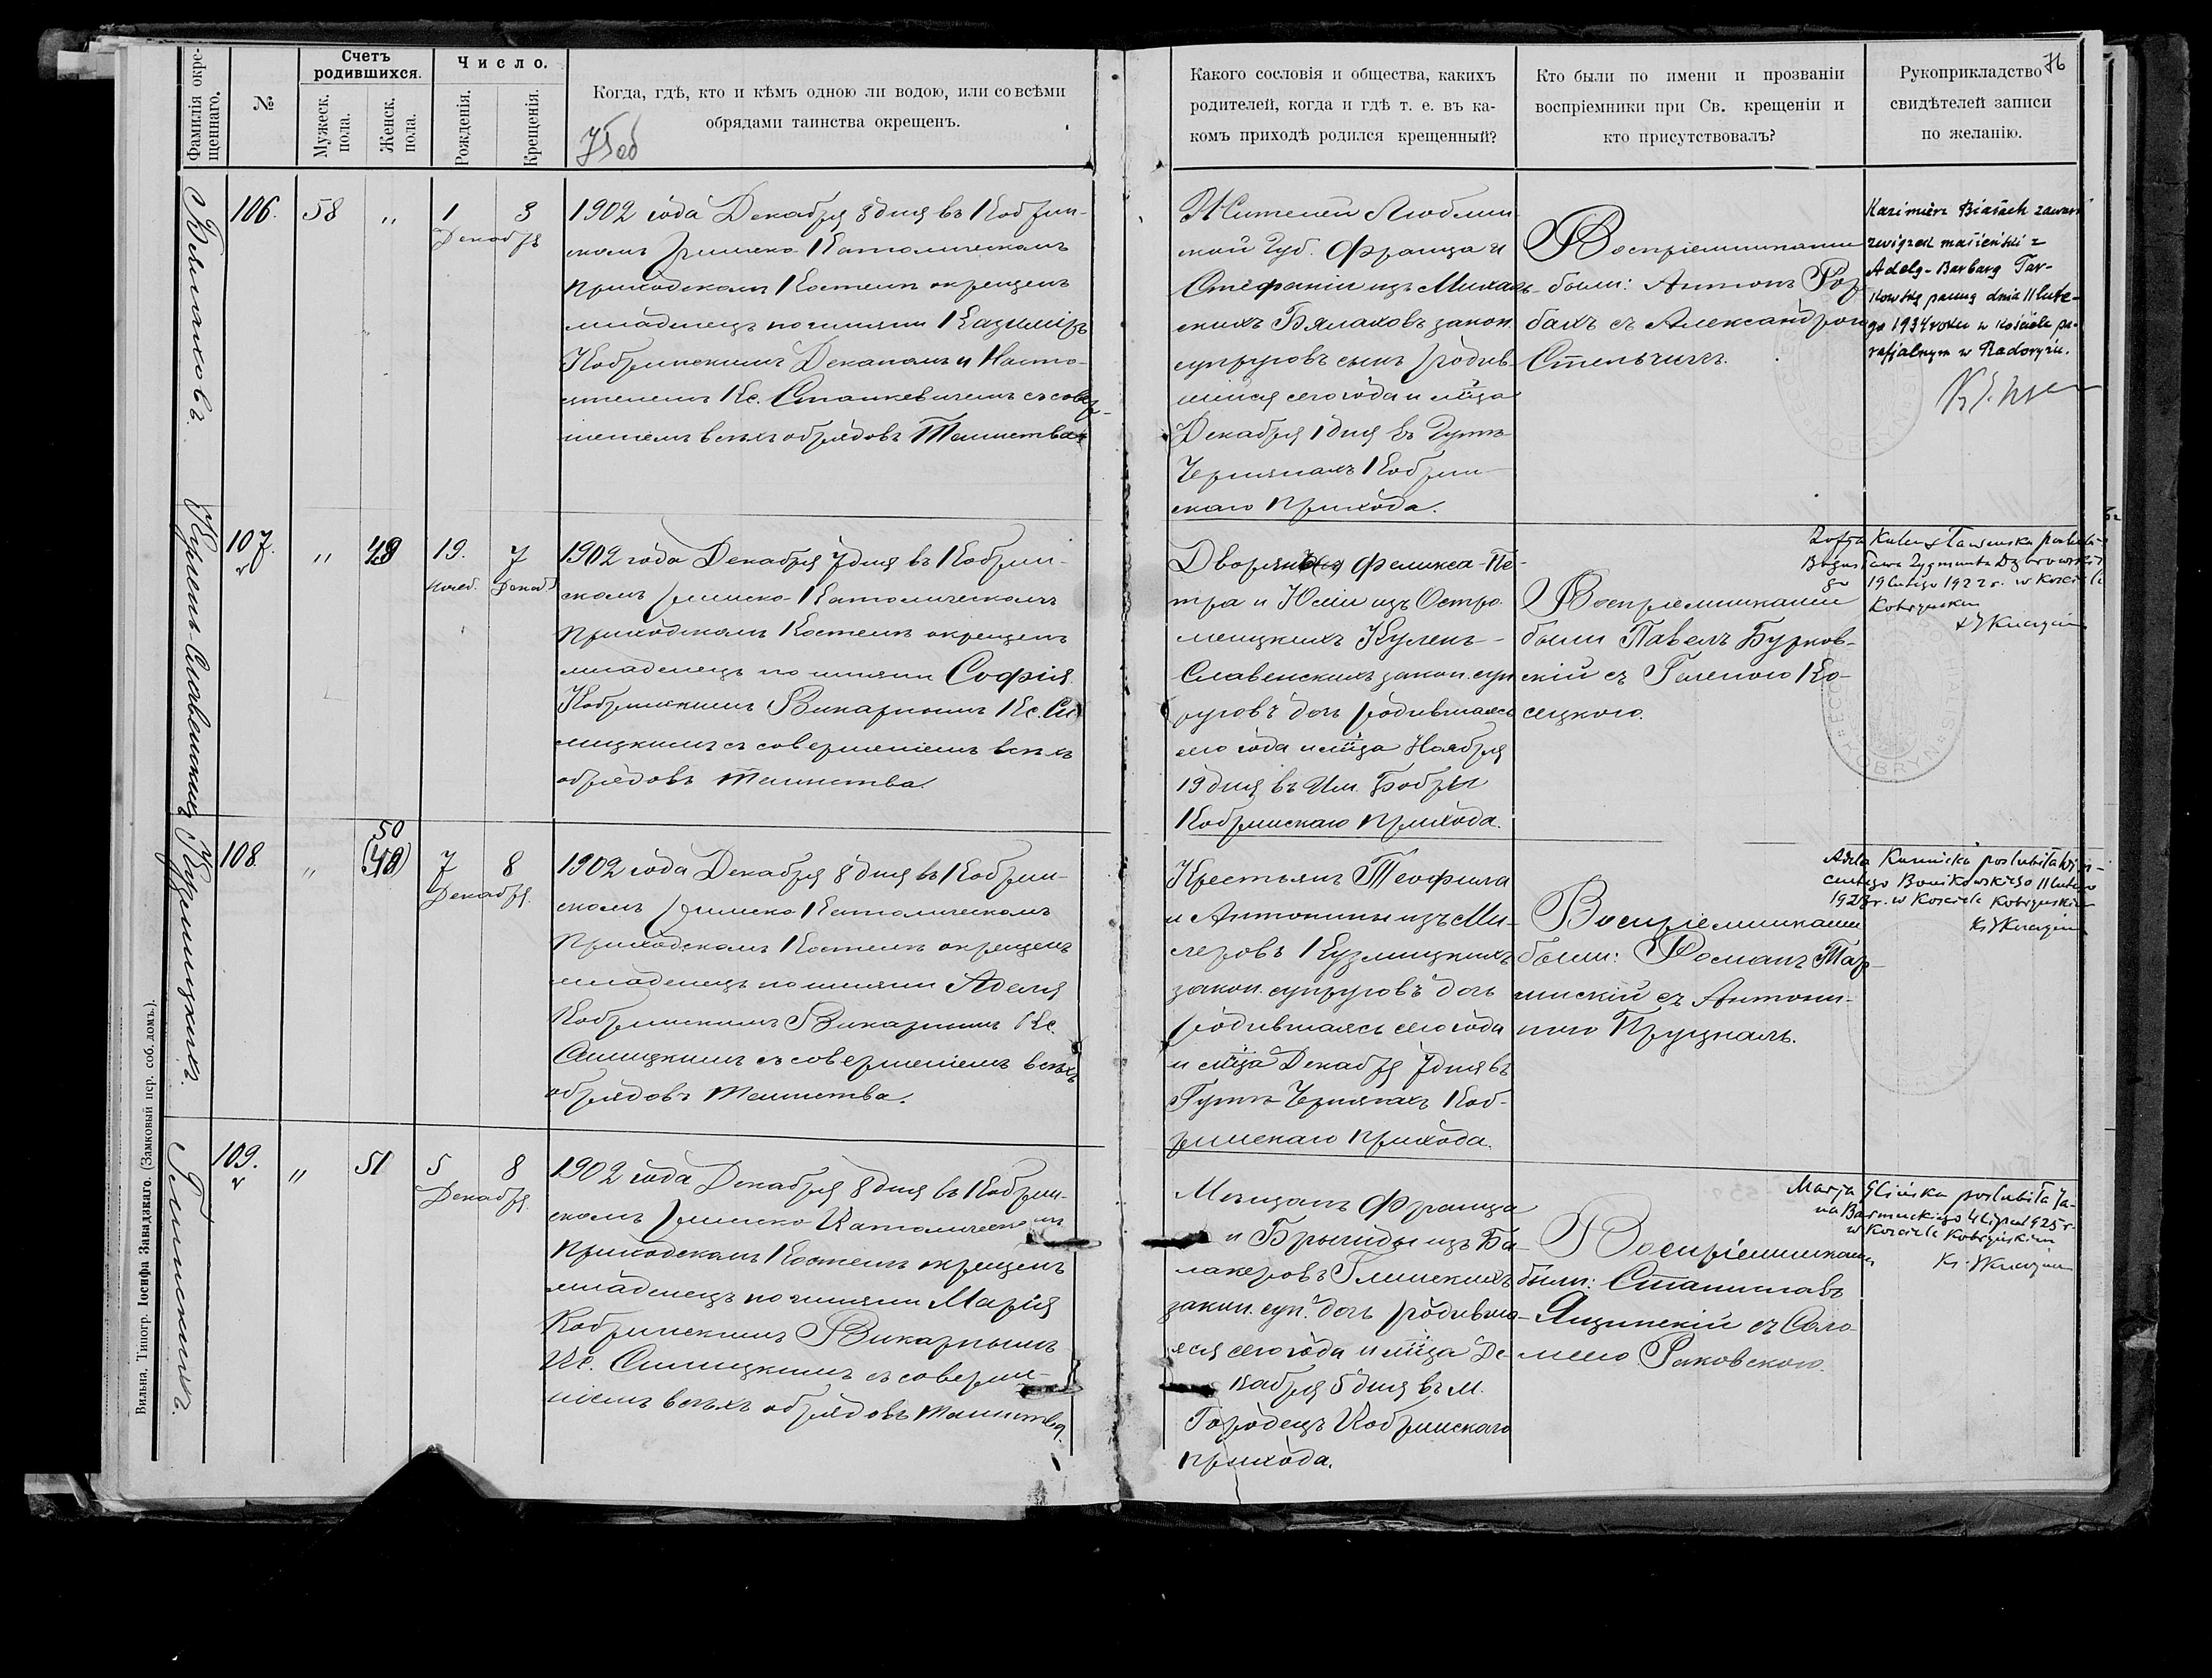 Фамилія окре-
щеннаго.
№
Счетъ
родившихся.
Мужеск.
пола.
Женск.
пола.
Число.
Рожденія.
Крещенія.
Когда, гдѣ, кто и кѣмъ одною ли водою, или со всѣми
обрядами таинства окрещенъ.
Какого сословія и общества, какихъ
родителей, когда и гдѣ т. е. въ ка-
комъ приходѣ родился крещенный?
Кто были по имени и прозванію
воспріемники при Св. крещеніи и
кто присутствовалъ?
Рукоприкладство
свидѣтелей записи
по желанію.
76
106.
58
"
1
3
Декабря
1902 года Декабря 3 дня въ Кобрин-
скомъ римско Католическомъ
Приходскомъ Костелѣ окрещенъ
младенецъ по имени Казиміръ
Кобринскимъ Деканомъ и Насто-
ятелемъ Кс. Станкевичемъ съ совер-
шеніемъ всѣхъ обрядовъ Таинства
Жителей Люблин
ской Губ. Франца и
Стефаніи изъ Михаль-
скихъ Бялаховъ закон.
супруговъ сынъ родив-
шійся сего года и м̃ца
Декабря 1 дня въ Гутѣ
Чернянахъ Кобрин-
скаго Прихода.
Воспріемниками
были: Антонъ
бахъ съ Александрою
Kazimierz Białach zawarł
związek małżeński z
Adelą-Barbarą Tar-
kowską panną dnia 11 lute-
go 1934 roku w kościele pa-
rafjalnym w Radoryżu.
107.
"
49
19.
7
Нояб.
Декаб.
1902 года Декабря 7 дня въ Кобрин-
скомъ римско-Католическомъ
Приходскомъ Костелѣ окрещенъ
младенецъ по имени Софія
Кобринскимъ Викарнымъ Кс. Си
лицкимъ съ совершеніемъ всѣхъ
обрядовъ таинства.
Дворянъ Феликса-Пе-
тра и Юліи изъ Остро-
мецкихъ Кулекъ-
Славенскихъ закон. суп
руговъ дочь родившаяся
сего года и м̃ца Ноября
19 дня въ Им. Бобры
Кобринскаго прихода.
Воспріемниками
были Павелъ Бурков-
скій съ Геленою Ко-
сецкою.
Zofja poślubiła
Bogusława Zygmunta Dąbrowskie
go 19 lutego 1922 r. w Kościele
Kobryńskim
108.
"
50
(49)
7
8
Декабря.
1902 года Декабря 8 дня въ Кобрин-
скомъ римско Католическомъ
Приходскомъ Костелѣ окрещенъ
младенецъ по имени Аделя
Кобринскимъ Викарнымъ Кс.
Силицкимъ съ совершеніемъ всѣхъ
обрядовъ таинства.
Крестьянъ Теофила
и Антонины изъ Ми-
леровъ Кузмицкихъ
закон. супруговъ дочь
родившаяся сего года
и м̃ца Декабря 7 дня въ
Гутѣ Чернянахъ Коб-
ринскаго прихода.
Воспріемниками
были: Романъ Тар-
инскій съ Антони-
ною Пруцналь.
Adela Kuźmicka poślubiła Win-
centego Bonikowskiego 11 lutego
w Kościele Kobryńskim
109.
"
51
5
8
Декабря.
1902 года Декабря 8 дня въ Кобрин-
скомъ римско Католическомъ
Приходскомъ Костелѣ окрещенъ
младенецъ по имени Марія
Кобринскимъ Викарнымъ
Кс. Силицкимъ съ соверше-
ніемъ всѣхъ обрядовъ таинства.
Мѣщанъ Франца
и Бригиды изъ Ба-
лакеровъ Глинскихъ
закон. суп. дочь родивша-
яся сего года и м̃ца Де-
кабря 5 дня въ м.
Городецъ Кобринскаго
прихода.
Воспріемниками
были: Станиславъ
Ящинскій съ Сало-
меею Раковскою.
Marja Glińska poślubiła Ja-
na 4 lipca 1925 r.
w Kościele Kobryńskim
Бялаховъ.
Кулекъ-Славенскихъ
Кузмицкихъ.
Глинскихъ.
Вильна. Типогр. Іосифа Завадзкаго. (Замковый пер. соб. домъ.).